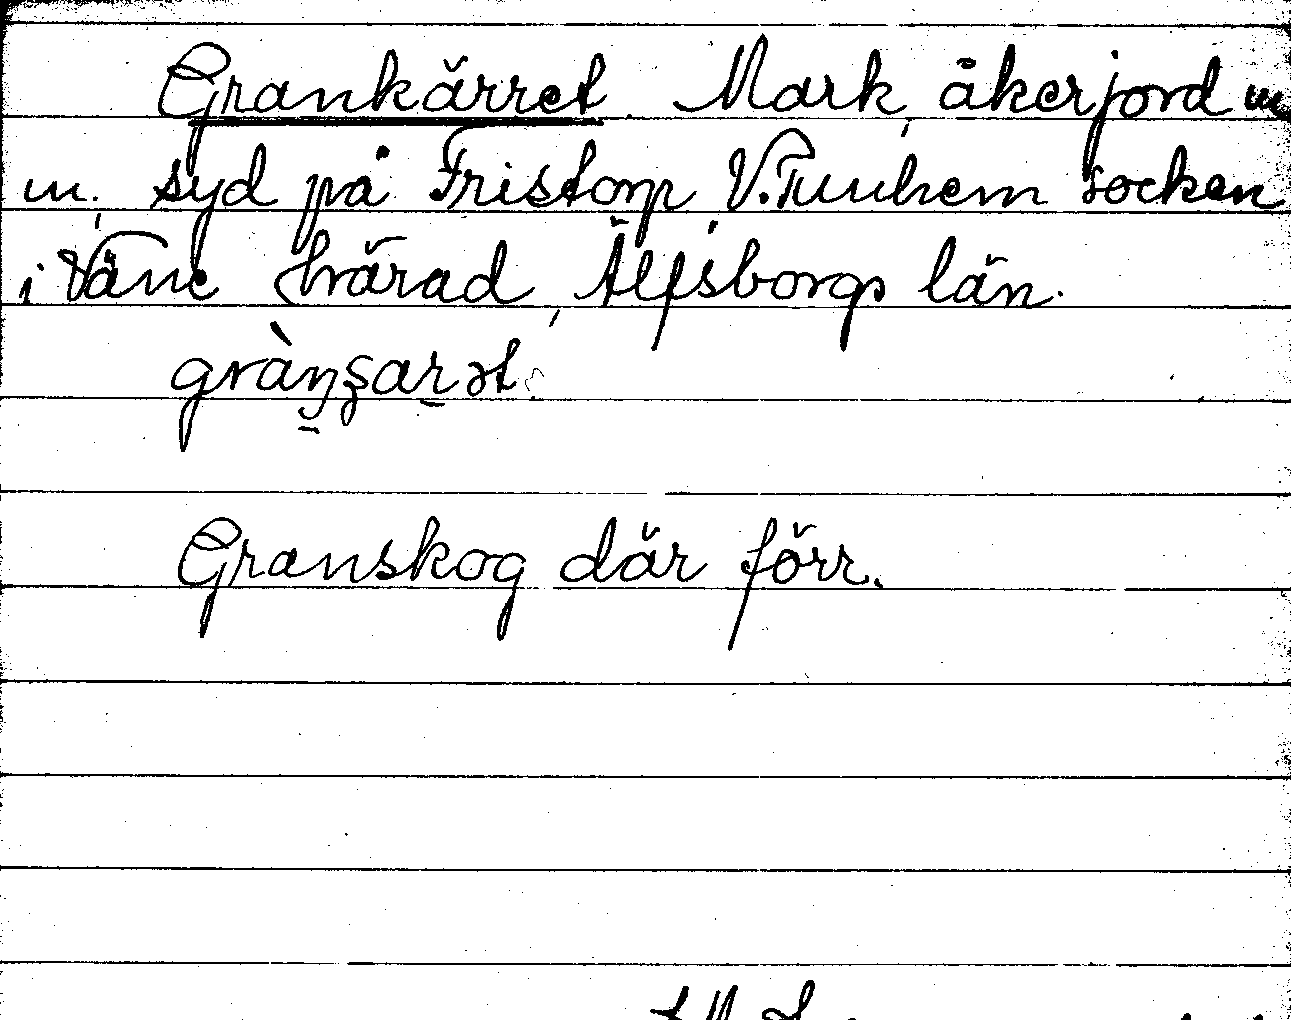 Grankärret Mark, åkerjord m
m. syd på Fristorp V.Tunhem socken
i Väne härad, Älfsborgs län.
Granskog där förr.